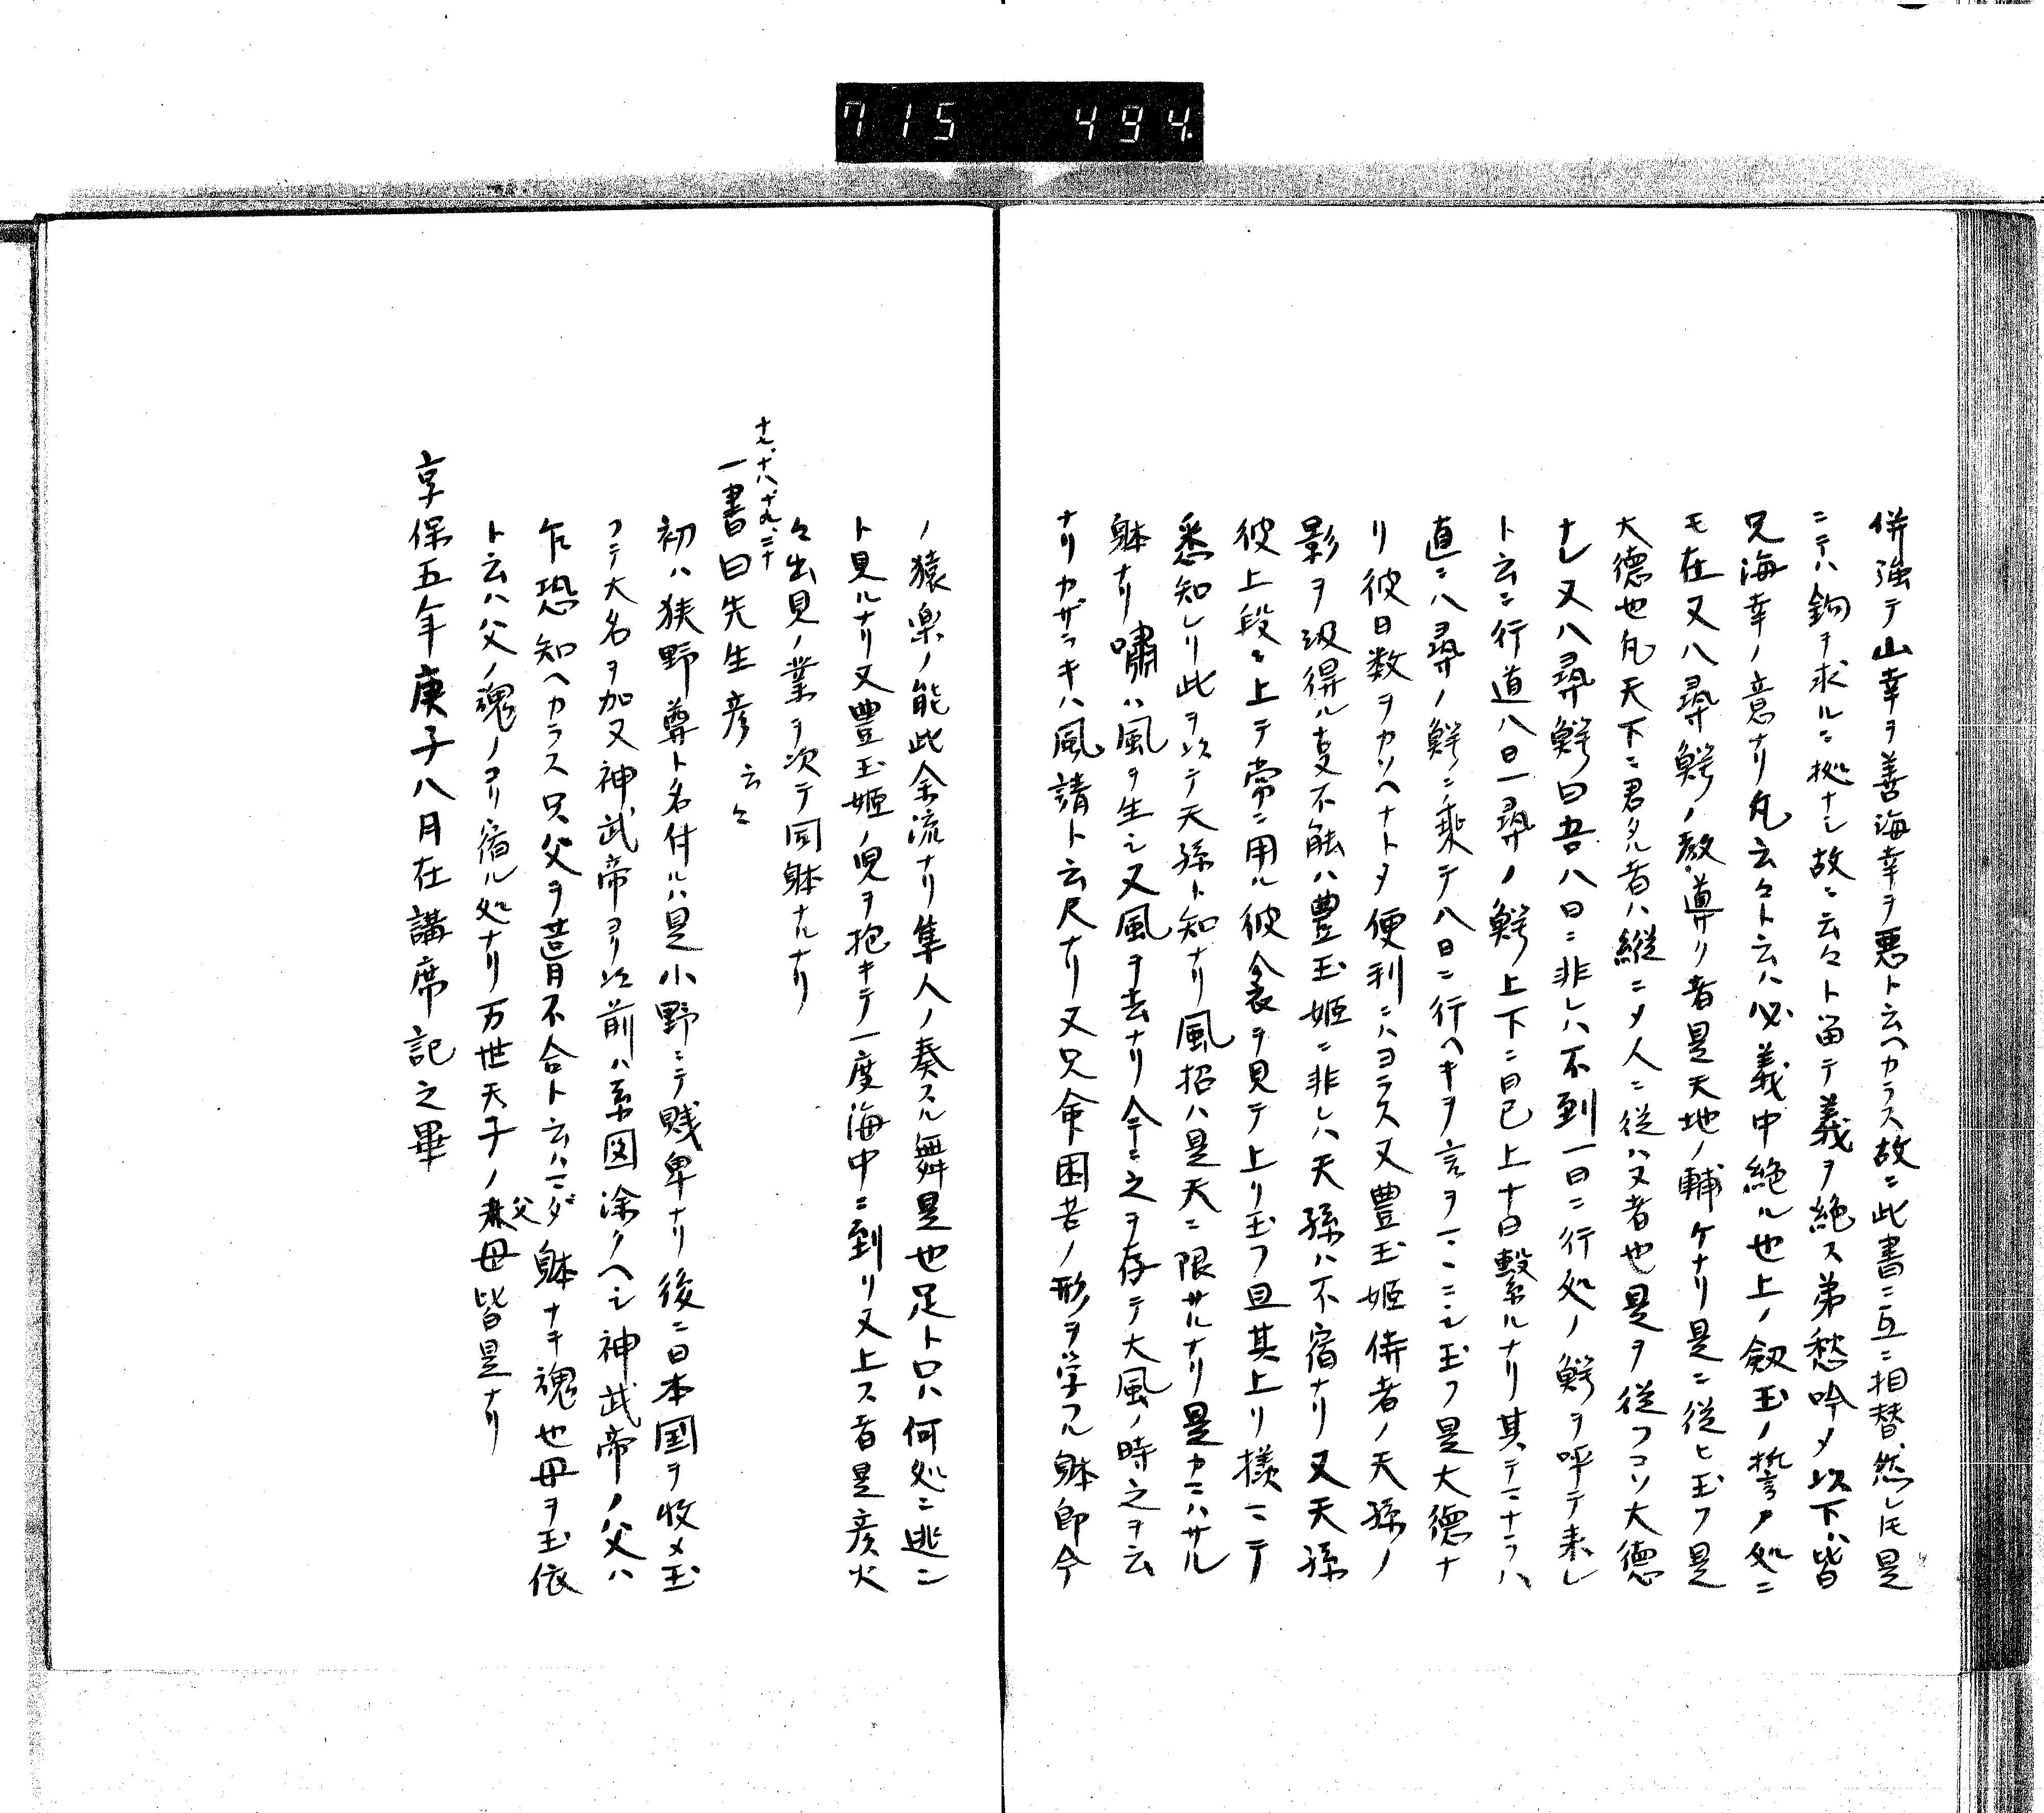 715 494
併強テ山幸ヲ善海幸ヲ悪ト云ヘカラス故ニ此書ニ互ニ相替然レ𪜈是
ニテハ鉤ヲ求ルニ拠ナシ故ニ云々ト留テ義ヲ絶ス弟愁吟〆以下ハ皆
兄海幸ノ意ナリ凡云々ト云ハ必義中絶ル也上ノ劔玉ノ誓ノ処ニ
モ在又八尋鰐ノ教導リ者是天地ノ輔ケナリ是ニ従ヒ玉フ是
大徳也凡天下ニ君タル者ハ縦ニ〆人ニ従ハヌ者也是ヲ従フコソ大徳
ナレ又八尋鰐曰吾八日ニ非レハ不到一日ニ行処ノ鰐ヲ呼テ来レ
ト云ニ行道八日一尋ノ鰐上下ニ日已上十日繫ルナリ其テ
直ニ八尋ノ鰐ニ乗テ八日ニ行ヘキヲ言ヲ玉フ是大徳ナ
リ彼日数ヲカソヘナトタ便利ニハヨラス又豊玉姫侍者ノ天孫ノ
影ヲ汲得ル支不能ハ豊玉姫ニ非レハ天孫ハ不宿ナリ又天孫
彼上段ニ上テ常ニ用ル彼衾ヲ見テ上リ玉フ且其上リ様ニテ
悉知レリ此ヲ以テ天孫ト知ナリ風招ハ是天ニ限サルナリ是カニハサル
躰ナリ嘯ハ風ヲ生シ又風ヲ去ナリ今ニ之ヲ存テ大風ノ時之ヲ云
ナリカザヲキハ風請ト云尺ナリ又兄命困苦ノ形ヲ学フル躰即今
ノ猿楽ノ能此余流ナリ隼人ノ奏スル舞是也足ト只ハ何処ニ逃ン
ト見ルナリ又豊玉姫ノ児ヲ抱キテ一度海中ニ到リ又上ス者是彦火
々出見ノ業ヲ次テ同躰ナルナリ
十七、十八、十九、二十
一書曰先生彦云々
初ハ狭野尊ト名付ルハ是小野ニテ賎卑ナリ後ニ日本国ヲ收メ玉
フニテ大名ヲ加又神武帝ヨリ以前ハ系図涂クヘシ神武帝ノ父ハ
乍恐知ヘカラス只父ヲ葺不合ト云ハ躰ナキ魂也母ヲ玉依
ト云ハ父ノ魂ノヨリ宿ル処ナリ万世天子ノ父母皆是ナリ
享保五年庚子八月在講席記之畢